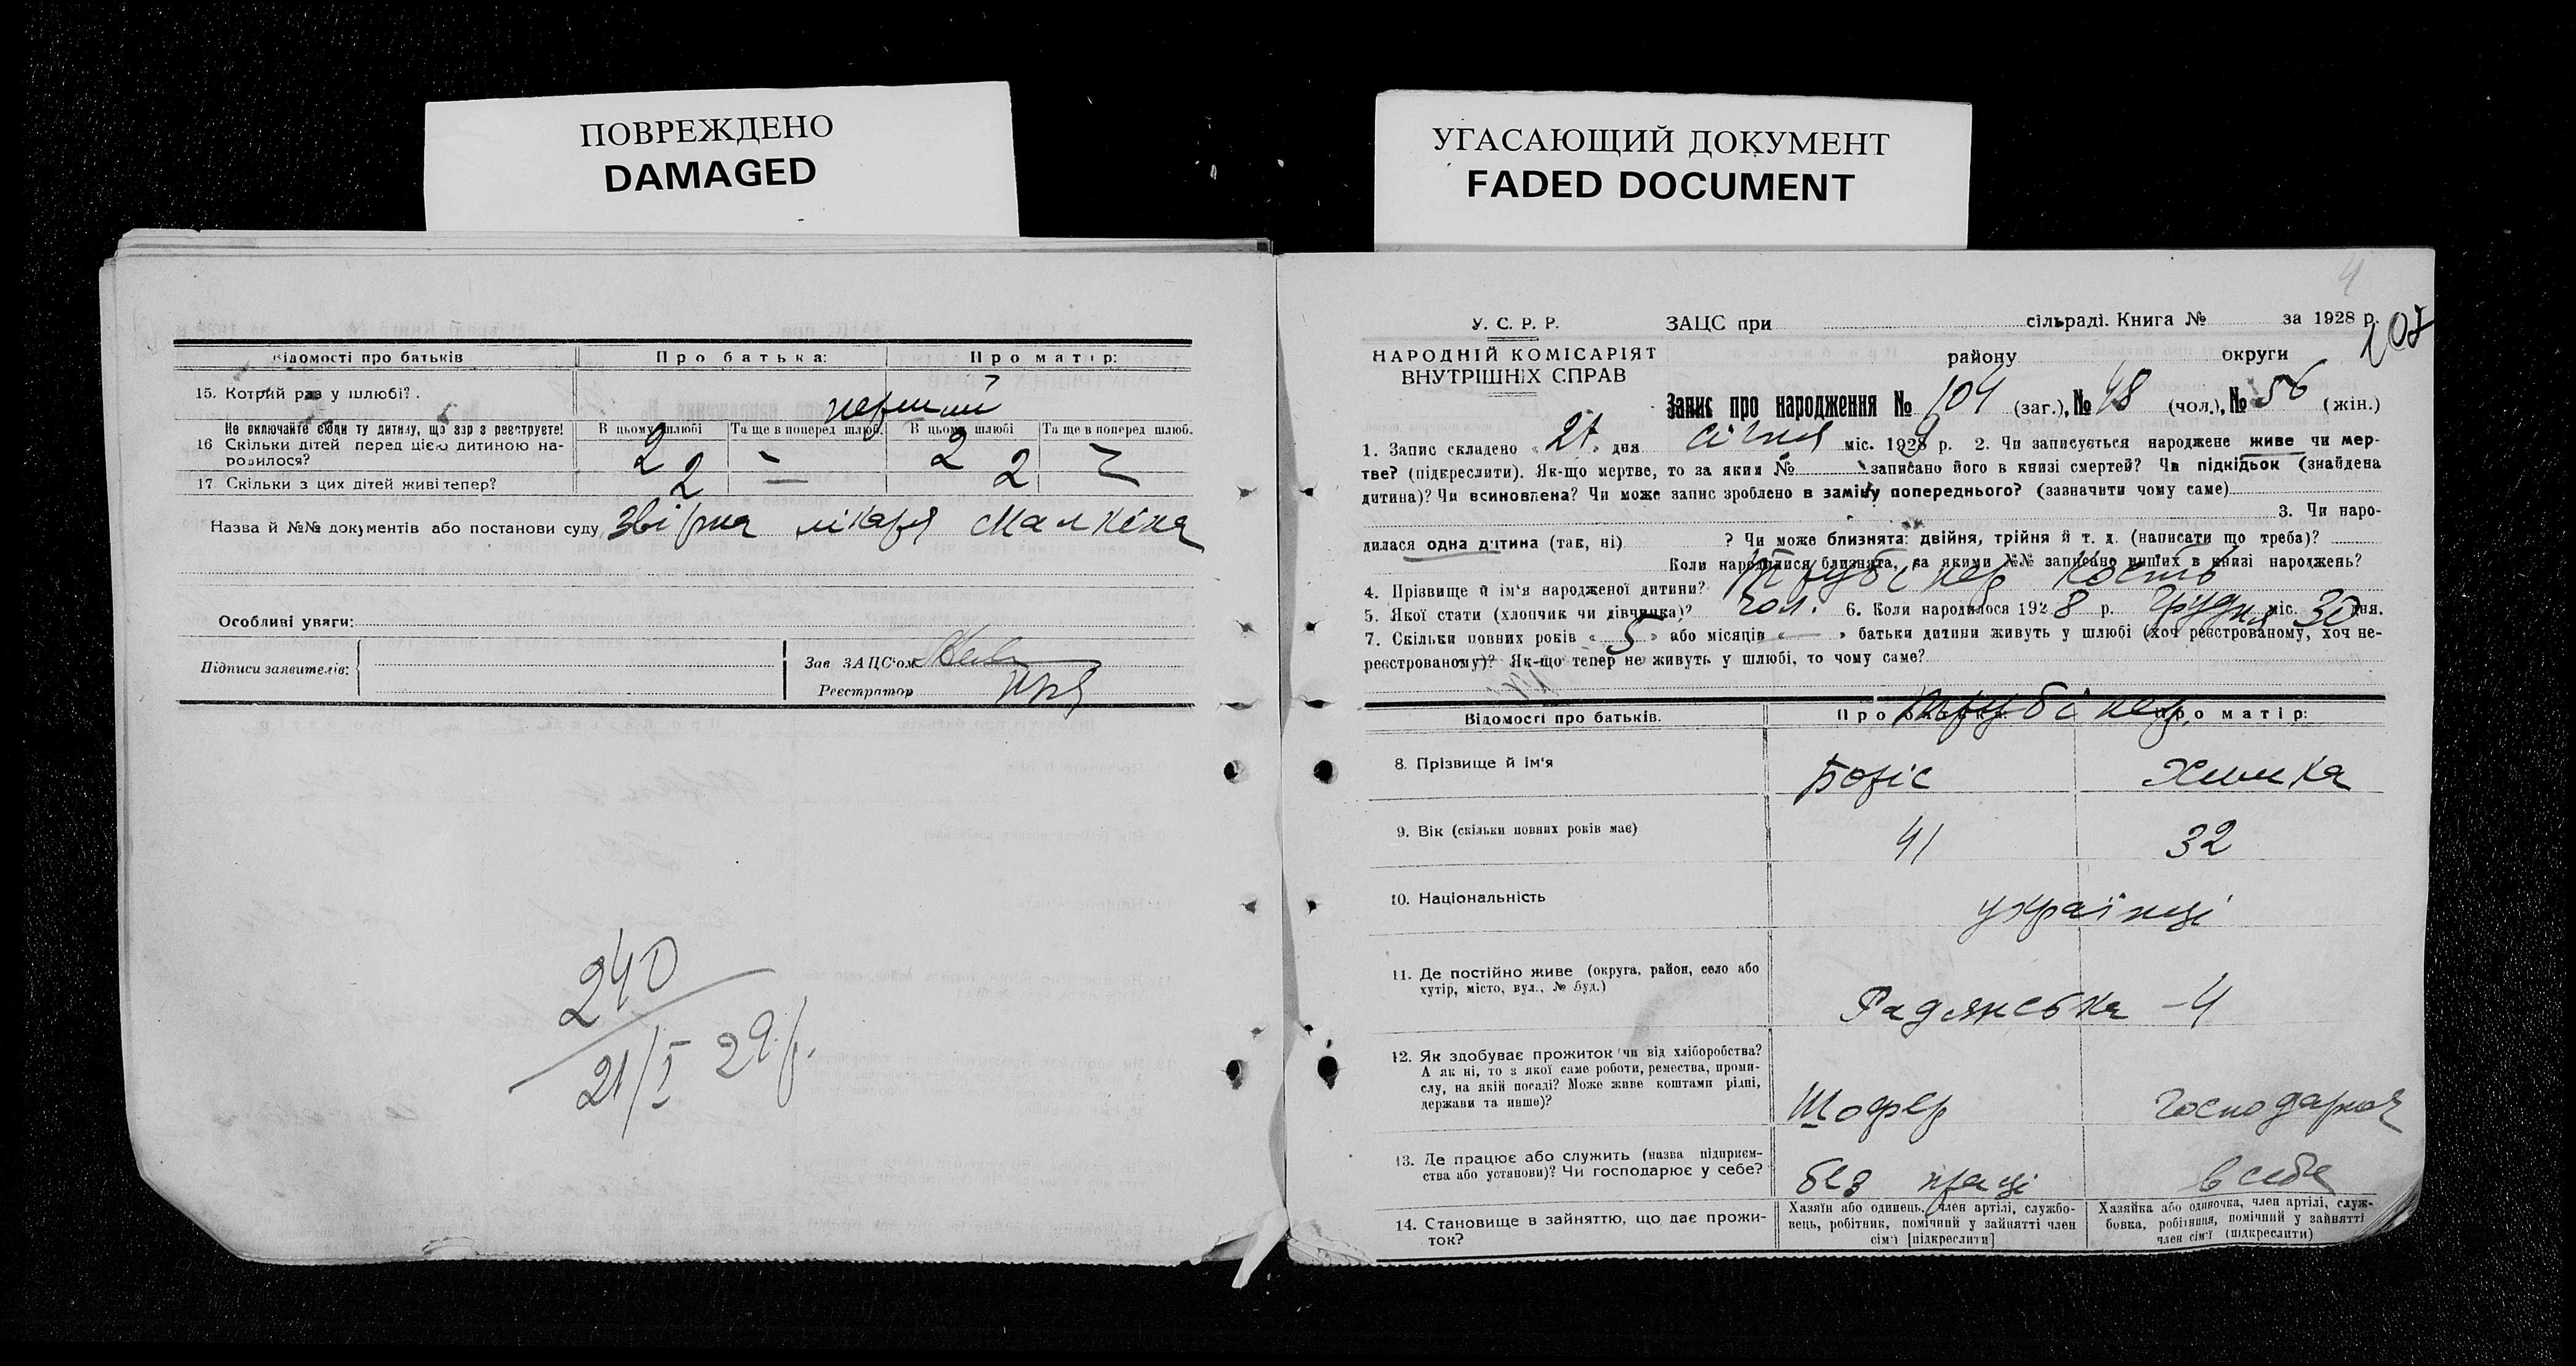 ПОВРЕЖДЕНО
DAMAGED
Відомості про батьків
Про батька:
Про матір:
15. Котрий раз у шлюбі?
перший
Не включайте сюди ту дитину, що зар з реєструєте!
В цьому шлюбі
Та ще в поперед шлюб.
В цьому шлюбі
Та ще в поперед шлюб.
16 Скільки дітей перед цією дитиною на-
родилося?
2 - 2
17 Скільки з цих дітей живі тепер?
2 — 2
Назва й №№ документів або постанови суду Звірка лікаря Малкіна
Особливі уваги:
Підписи заявителів:
Зав ЗАЦС'ом
Реєстратор
240
21/I 29 р.
УГАСАЮЩИЙ ДОКУМЕНТ
FADED DOCUMENT
4
207
У. С. Р. Р.
НАРОДНІЙ КОМІСАРІЯТ
ВНУТРІШНІХ СПРАВ
ЗАЦС при сільраді. Книга № за 1928 р.
району округи
Запис про народження № 104 (заг.), № 48 (чол.), № 56 (жін.)
1. Запис складено « 21 » дня січня міс. 1929 р. 2. Чи записується народжене живе чи мер-
тве? (підкреслити). Як-що мертве, то за яким № записано його в книзі смертей? Чи підкідьок (знайдена
дитина)? Чи всиновлена? Чи може запис зроблено в заміну попереднього? (зазначити чому саме)
3. Чи наро-
дилася одна дитина (так, ні) ? Чи може близнята: двійня, трійня й т. д. (написати що треба)?
Коли народилися близнята, за якими №№ записано инших в книзі народжень?
4. Прізвище й ім'я народженої дитини? Трубінер Кость
5. Якої стати (хлопчик чи дівчинка)? чол. 6. Коли народилося 1928 р. Грудня міс. 30 дня.
7. Скільки повних років « 5 » або місяців « — » батьки дитини живуть у шлюбі (хоч реєстрованому, хоч не-
реєстрованому)? Як-що тепер не живуть у шлюбі, то чому саме?
Відомості про батьків.
Про батька:
Про матір:
8. Прізвище й ім'я
Борис
Химка
9. Вік (скільки повних років має)
41
32
10. Національність
українці
11. Де постійно живе (округа, район, село або
хутір, місто, вул., № буд.)
Радянська - 4
12. Як здобуває прожиток чи від хліборобства?
А як ні, то з якої саме роботи, ремества, проми-
слу, на якій посаді? Може живе коштами рідні,
держави та инше)?
Шофер
Господарка
13. Де працює або служить (назва підприєм-
ства або установи)? Чи господарює у себе?
без праці
в себе
14. Становище в зайняттю, що дає прожи-
ток?
Хазяїн або одинець, член артілі, службо-
вець, робітник, помічний у зайнятті член
сім'ї [підкреслити]
Хазяйка або одиночка, член артілі, служ-
бовка, робітниця, помічний у зайнятті
член сім'ї (підкреслити)